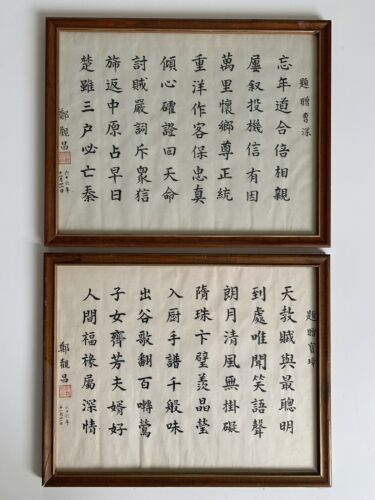 題贈曹深
忘年道合倍相親
屢叙投機信有因
萬里懷鄉尊正統
重洋作客保忠真
傾心確證回天命
討賊嚴詞斥眾信
旆返中原占早日
楚雖三户必亡秦
鄭觀昌
六十六年
題贈寶琦
天教賦與最聰明
到處唯聞笑語聲
朗月清風無掛礙
隋珠卞璧羨晶瑩
入厨手譜千般味
出谷歌翻百囀鶯
子女齊芳夫婿好
人間福祿屬深情
鄭觀昌
六十六年